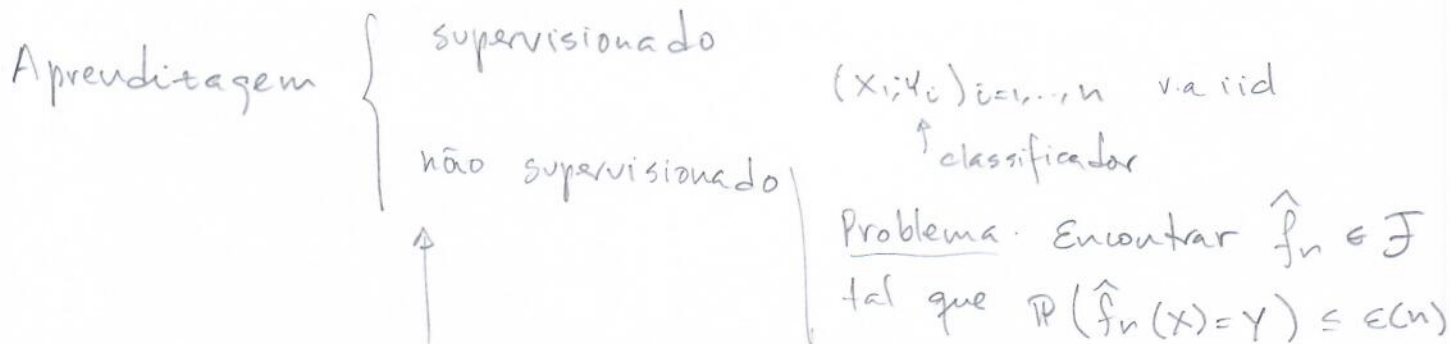 Aprendizagem
supervisionado
não supervisionado
(Xi; Yi) i=1,...,n v.a iid
classificador
Problema. Encontrar f̂n ∈ F
tal que ℙ(f̂n(X)=Y) ≤ ε(n)